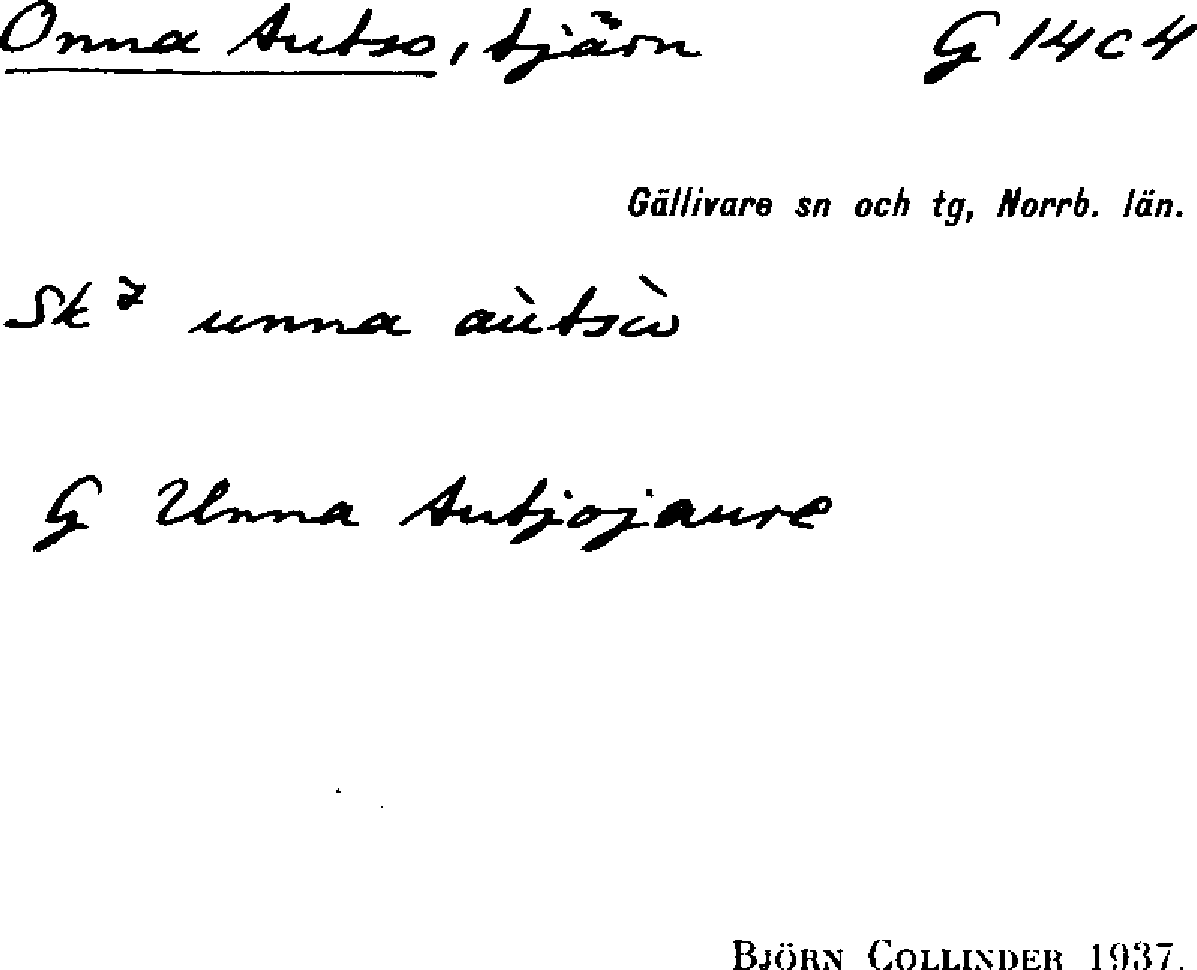 Onna Autso, tjärn G 14 c 4
Gällivare sn och tg, Norrb. län.
Sk 7 unna aùtsù
G Unna Autjojaure
BJÖRN COLLINDER 1937.